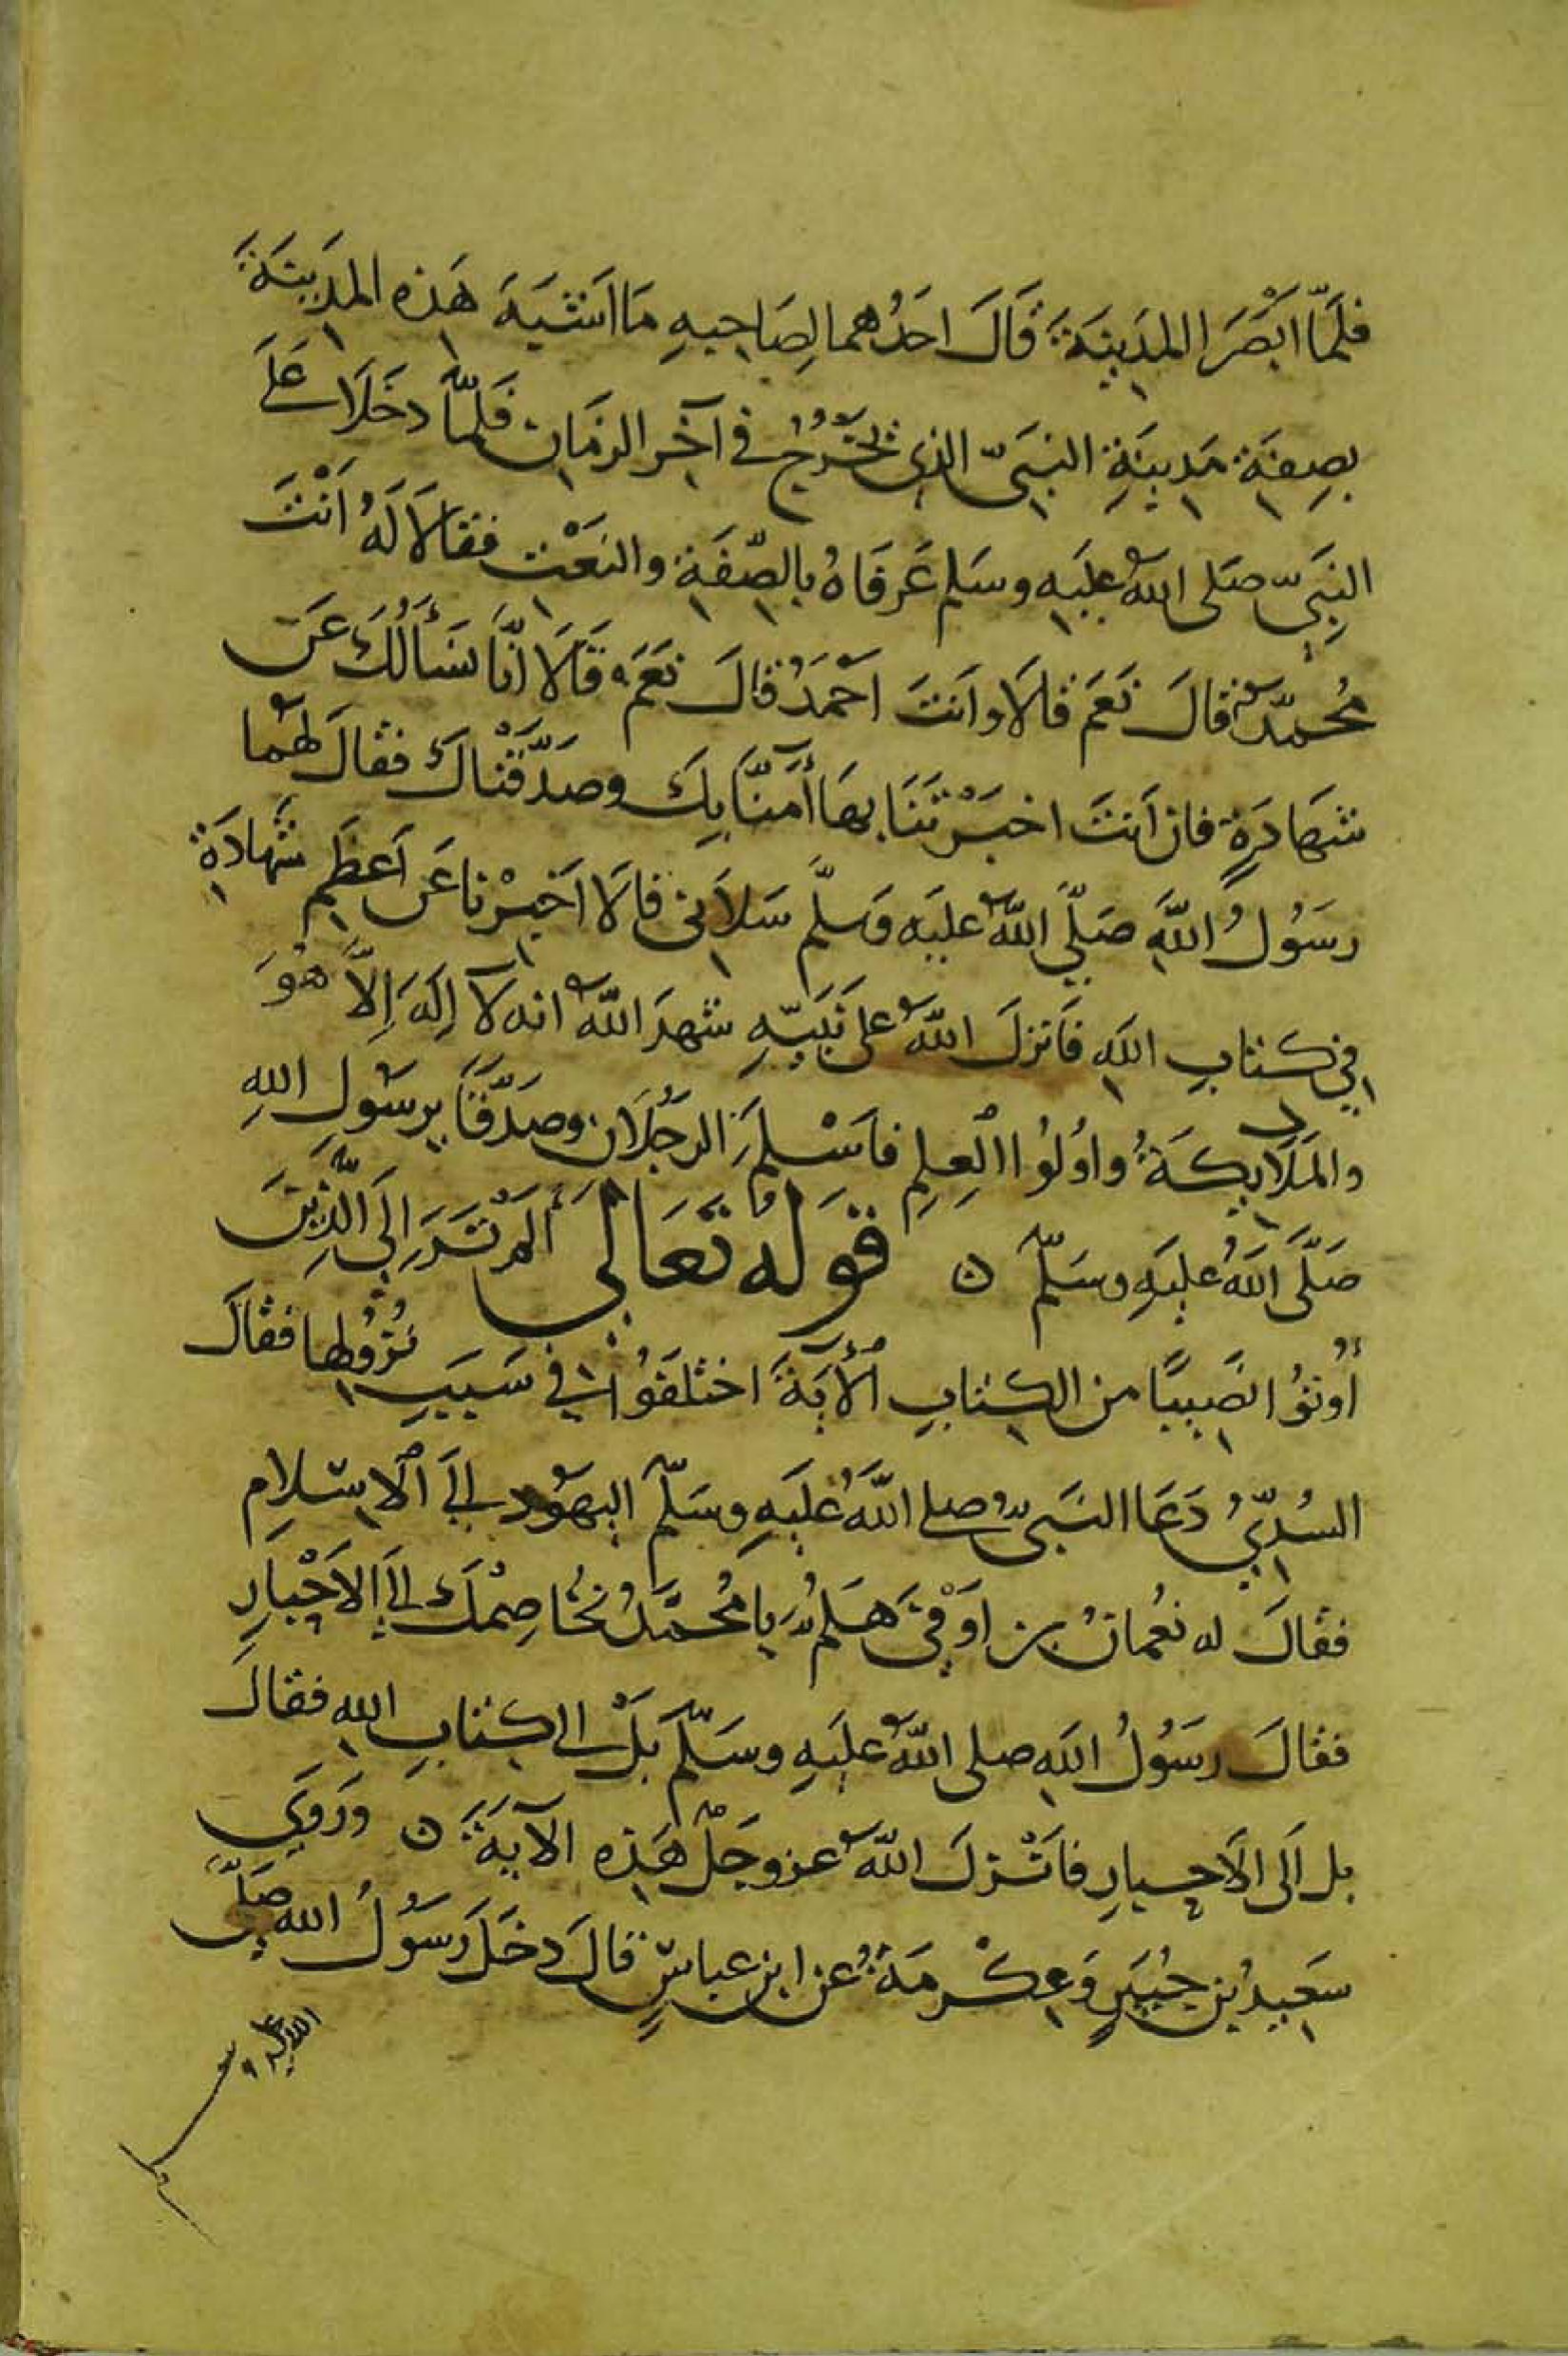 فلَمّا ابْصَرَا المدَينَةَ قَالَ احَدُهما لِصَاحِبِهِ مَا اشبَهَ هَذِه المدَينَةَ
بصِفَةِ مَدِينَةِ النبَيّ الذِى يَخرُجُ فى آخِر الزمَانِ فَلمّا دخَلَا عَلَى
النبَيِّ صَلى اللهُ عليَهِ وسَلم عَرَفَاهُ بالصِّفَةِ والنَعْتِ فقالَا لَهُ اَنْتَ
مُحمّدٌ قالَ نَعَم قالَا وانَتَ اَحْمَدُ قالَ نعَمَ قَالَا انَّا نَسَألُكَ عَن
شهَادَةٍ فان اَنتَ اخبَرْتَنَا بهَا أَمَنَّا بِكَ وصَدَّقْناكَ فقالَ لهُما
رسَوُلُ اللَّهِ صَلّى اللَّهُ عليَه وَسَلّم سَلَانى قالَا اَخبِرْنا عَن اَعظَمِ شهَادَةٍ
فِى كتابِ اللَهِ فَاَنزلَ اللَّهُ على نَبَيّهِ شهِدَ اللَّهُ انه لآ اِلَهَ اِلاَّ هُوَ
والمَلَايِكَةُ واوُلُوا العِلِم فاَسْلمَ الرجُلَانِ وصَدَّقَا برسَوُلِ اللهِ
صَلَّى اللَهُ عليَهِ وسَلّم ن قَولهُ تعَالَى أَلَمْ تَرَ اِلَى الَّذِينَ
أُوتوُا نصَيبًا من الكِتابِ الْأيَةَ اختلَفَوُا فى سَبَبِ نُزوُلِها فقالَ
السُدّيُّ دَعَا النبَىّ صلى اللَّهُ عَليَهِ وسَلّم اليَهوُد اِلَى الْاسِلام
فقالَ له نعُمانُ بن اَوْفىَ هَلُمَّ يَا مُحمَّدُ نخُاصِمُكَ اِلى الاَحْبَارِ
فقالَ رسَوُلُ اللَهِ صلى اللَّهُ عليَهِ وسَلّمَ بَلْ الى كتابِ اللهِ فقالَ
بل اَلَى الاَحبارِ فاَنْزلَ اللَّهُ عزوجَلّ هَذِه الآيَةَ ن وَرَوَى
سَعِيدُ بن جُبَيَرٍ وَعِكْرمَةُ عن ابن عباسٍ قالَ دخَلَ رسَوُلُ اللهِ صَلّى